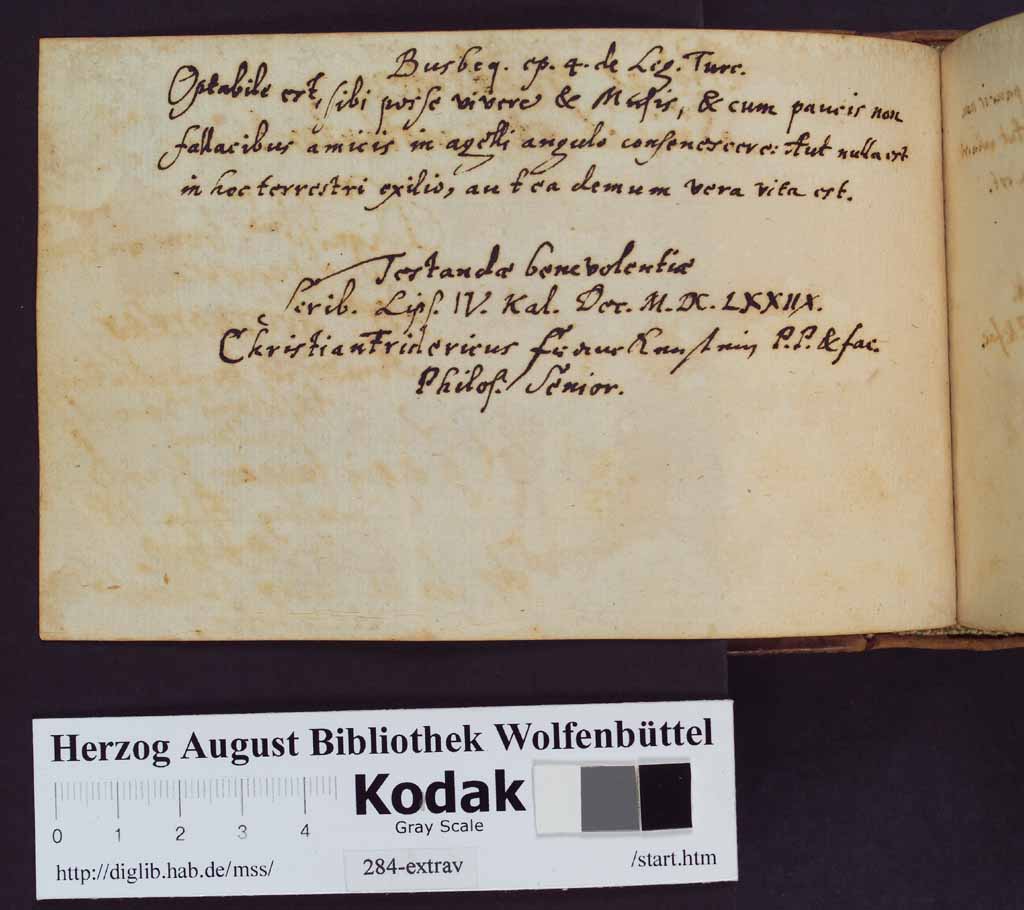 Busbeq. ep. 4. de Leg. Turc.
Optabile est, sibi posse vivere & Musis, & cum paucis non
fallacibus amicis in agelli angulo consenescere: Aut nulla est
in hoc terrestri exilio, aut ea demum vera vita est.
Testandæ benevolentiæ
scrib. Lips. IV. Kal. Dec. M. DC. LXXIIX.
Christian Fridericus Franckenstein P.P. & fac.
Philos. Senior.
Herzog August Bibliothek Wolfenbüttel
0 1 2 3 4
Kodak
Gray Scale
http://diglib.hab.de/mss/ 284-extrav /start.htm